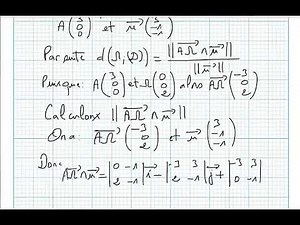 A(3 0 0) et u→(3 -1 -1)
Par suite d(Ω,(D)) = ||AΩ→ ∧ u→|| / ||u→||
Puisque : A(3 0 0) et Ω(0 0 2) alors AΩ→(-3 0 2)
Calculons ||AΩ→ ∧ u→||
On a : AΩ→(-3 0 2) et u→(3 -1 -1)
Donc
AΩ→ ∧ u→ = |0 -1 2 -1| i→ - |-3 3 2 -1| j→ + |-3 3 0 -1|